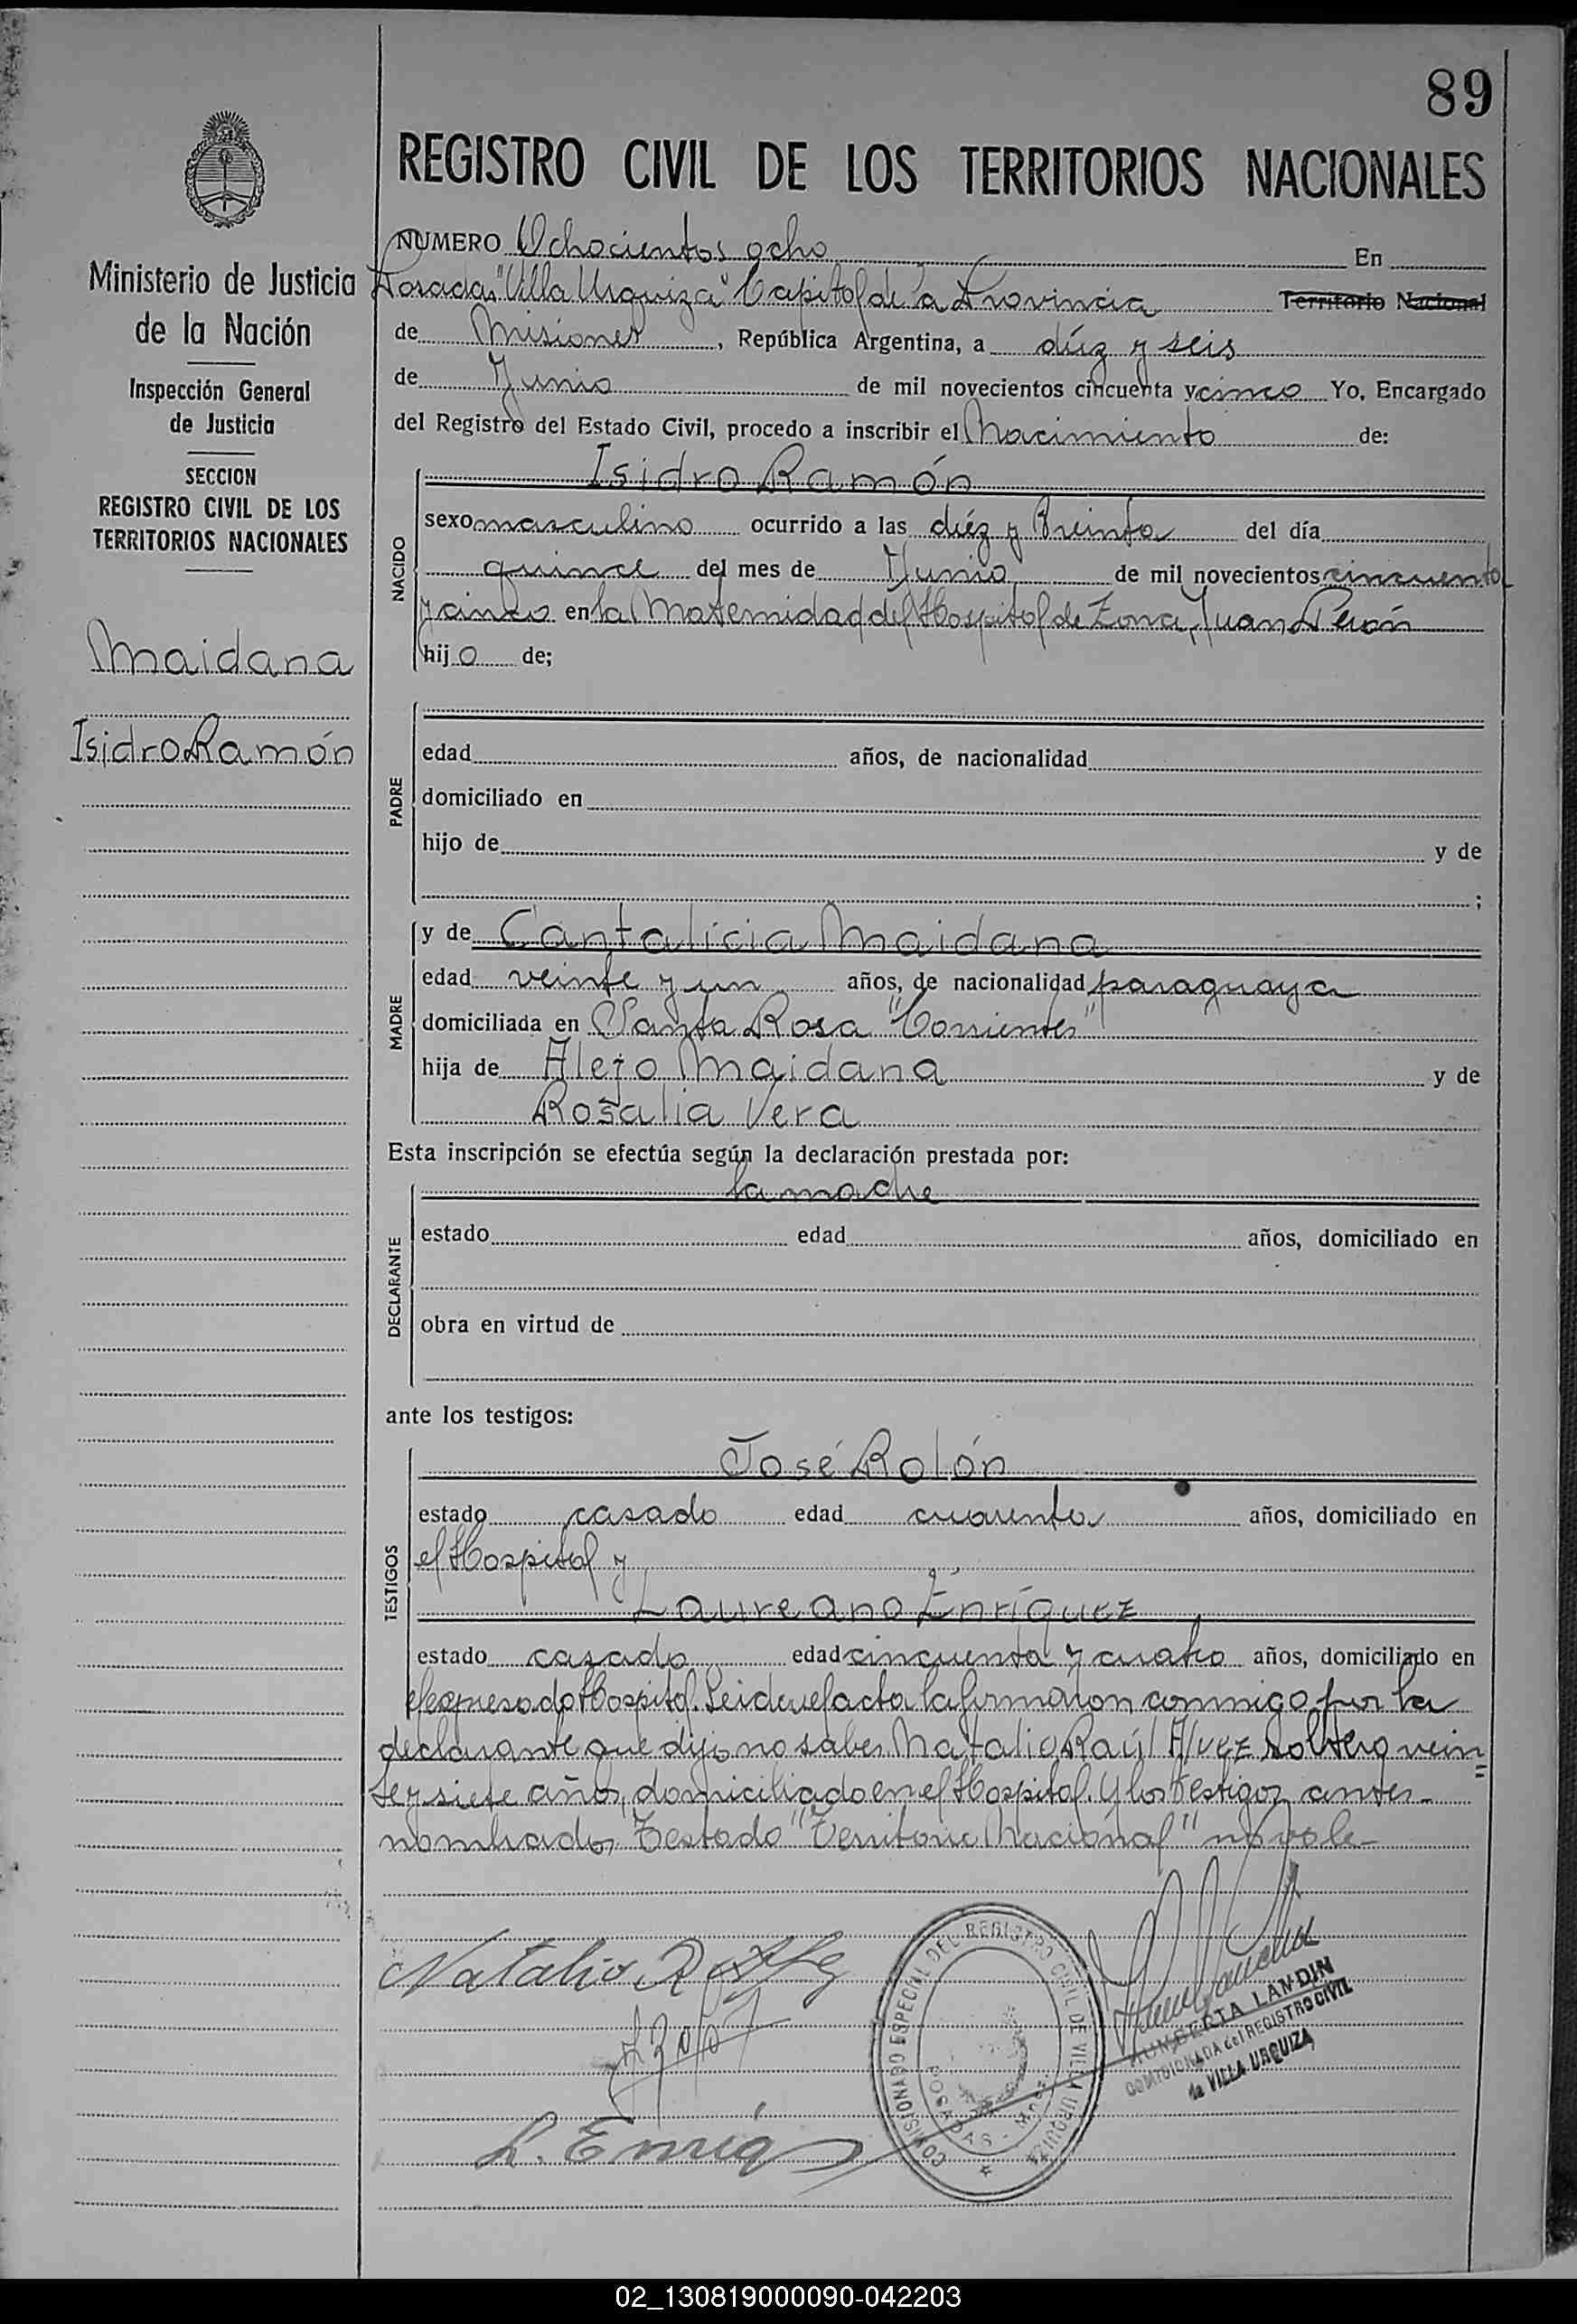 89
REGISTRO CIVIL DE LOS TERRITORIOS NACIONALES
Ministerio de Justicia
de la Nación
Inspección General
de Justicia
SECCION
REGISTRO CIVIL DE LOS
TERRITORIOS NACIONALES
Maidana
Isidro Ramón
NUMERO Ochocientos ocho En
Posadas "Villa Urquiza" Capital de la Provincia Territorio Nacional
de Misiones, República Argentina, a diéz y seis
de Junio de mil novecientos cincuenta y cinco Yo, Encargado
del Registro del Estado Civil, procedo a inscribir el Nacimiento de:
NACIDO
Isidro Ramón
sexo masculino ocurrido a las diéz y treinta del día
quince del mes de Junio de mil novecientos cincuenta
y cinco en la Maternidad del Hospital de Zona, Juan Perón
hijo de;
PADRE
edad años, de nacionalidad
domiciliado en
hijo de y de
;
MADRE
y de Cantalicia Maidana
edad veinte y un años, de nacionalidad paraguaya
domiciliada en Santa Rosa "Corrientes"
hija de Alejo Maidana y de
Rosalia Vera
Esta inscripción se efectúa según la declaración prestada por:
DECLARANTE
la madre
estado edad años, domiciliado en
obra en virtud de
ante los testigos:
TESTIGOS
José Rolón
estado casado edad cuarenta años, domiciliado en
el Hospital y
Laureano Enríquez
estado casado edad cincuenta y cuatro años, domiciliado en
el expresado Hospital. Leida el acta la firmaron conmigo por la
declarante que dijo no saber Natalio Raúl Alvez soltero vein=
te y siete años, domiciliado en el Hospital. Y los testigos antes-
nombrados, Testado "Territorio Nacional" no vale-
Natalio R
L. Enriq
COMISIONADO ESPECIAL DEL REGISTRO CIVIL DE VILLA URQUIZA
POSADAS - Mnes.
LANDIN
COMISIONADA del REGISTRO CIVIL
de VILLA URQUIZA
02_130819000090-042203